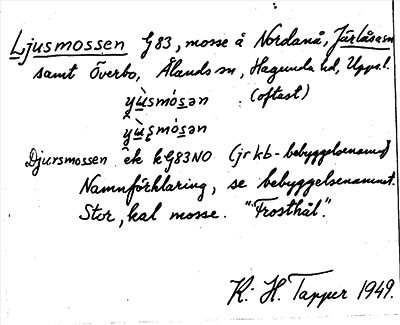 Ljusmossen G83, mosse å Nordanå, Järlåsa sn
samt Överbo, Ålands sn, Hagunda hd, Upps. l.
yùsmósən (oftast)
yùsmósən
Djursmossen ek kG83NO (jrkb-bebyggelsenamn)
Namnförklaring, se bebyggelsenamnet.
Stor, kal mosse. "Frosthål".
K: H. Tapper 1949.